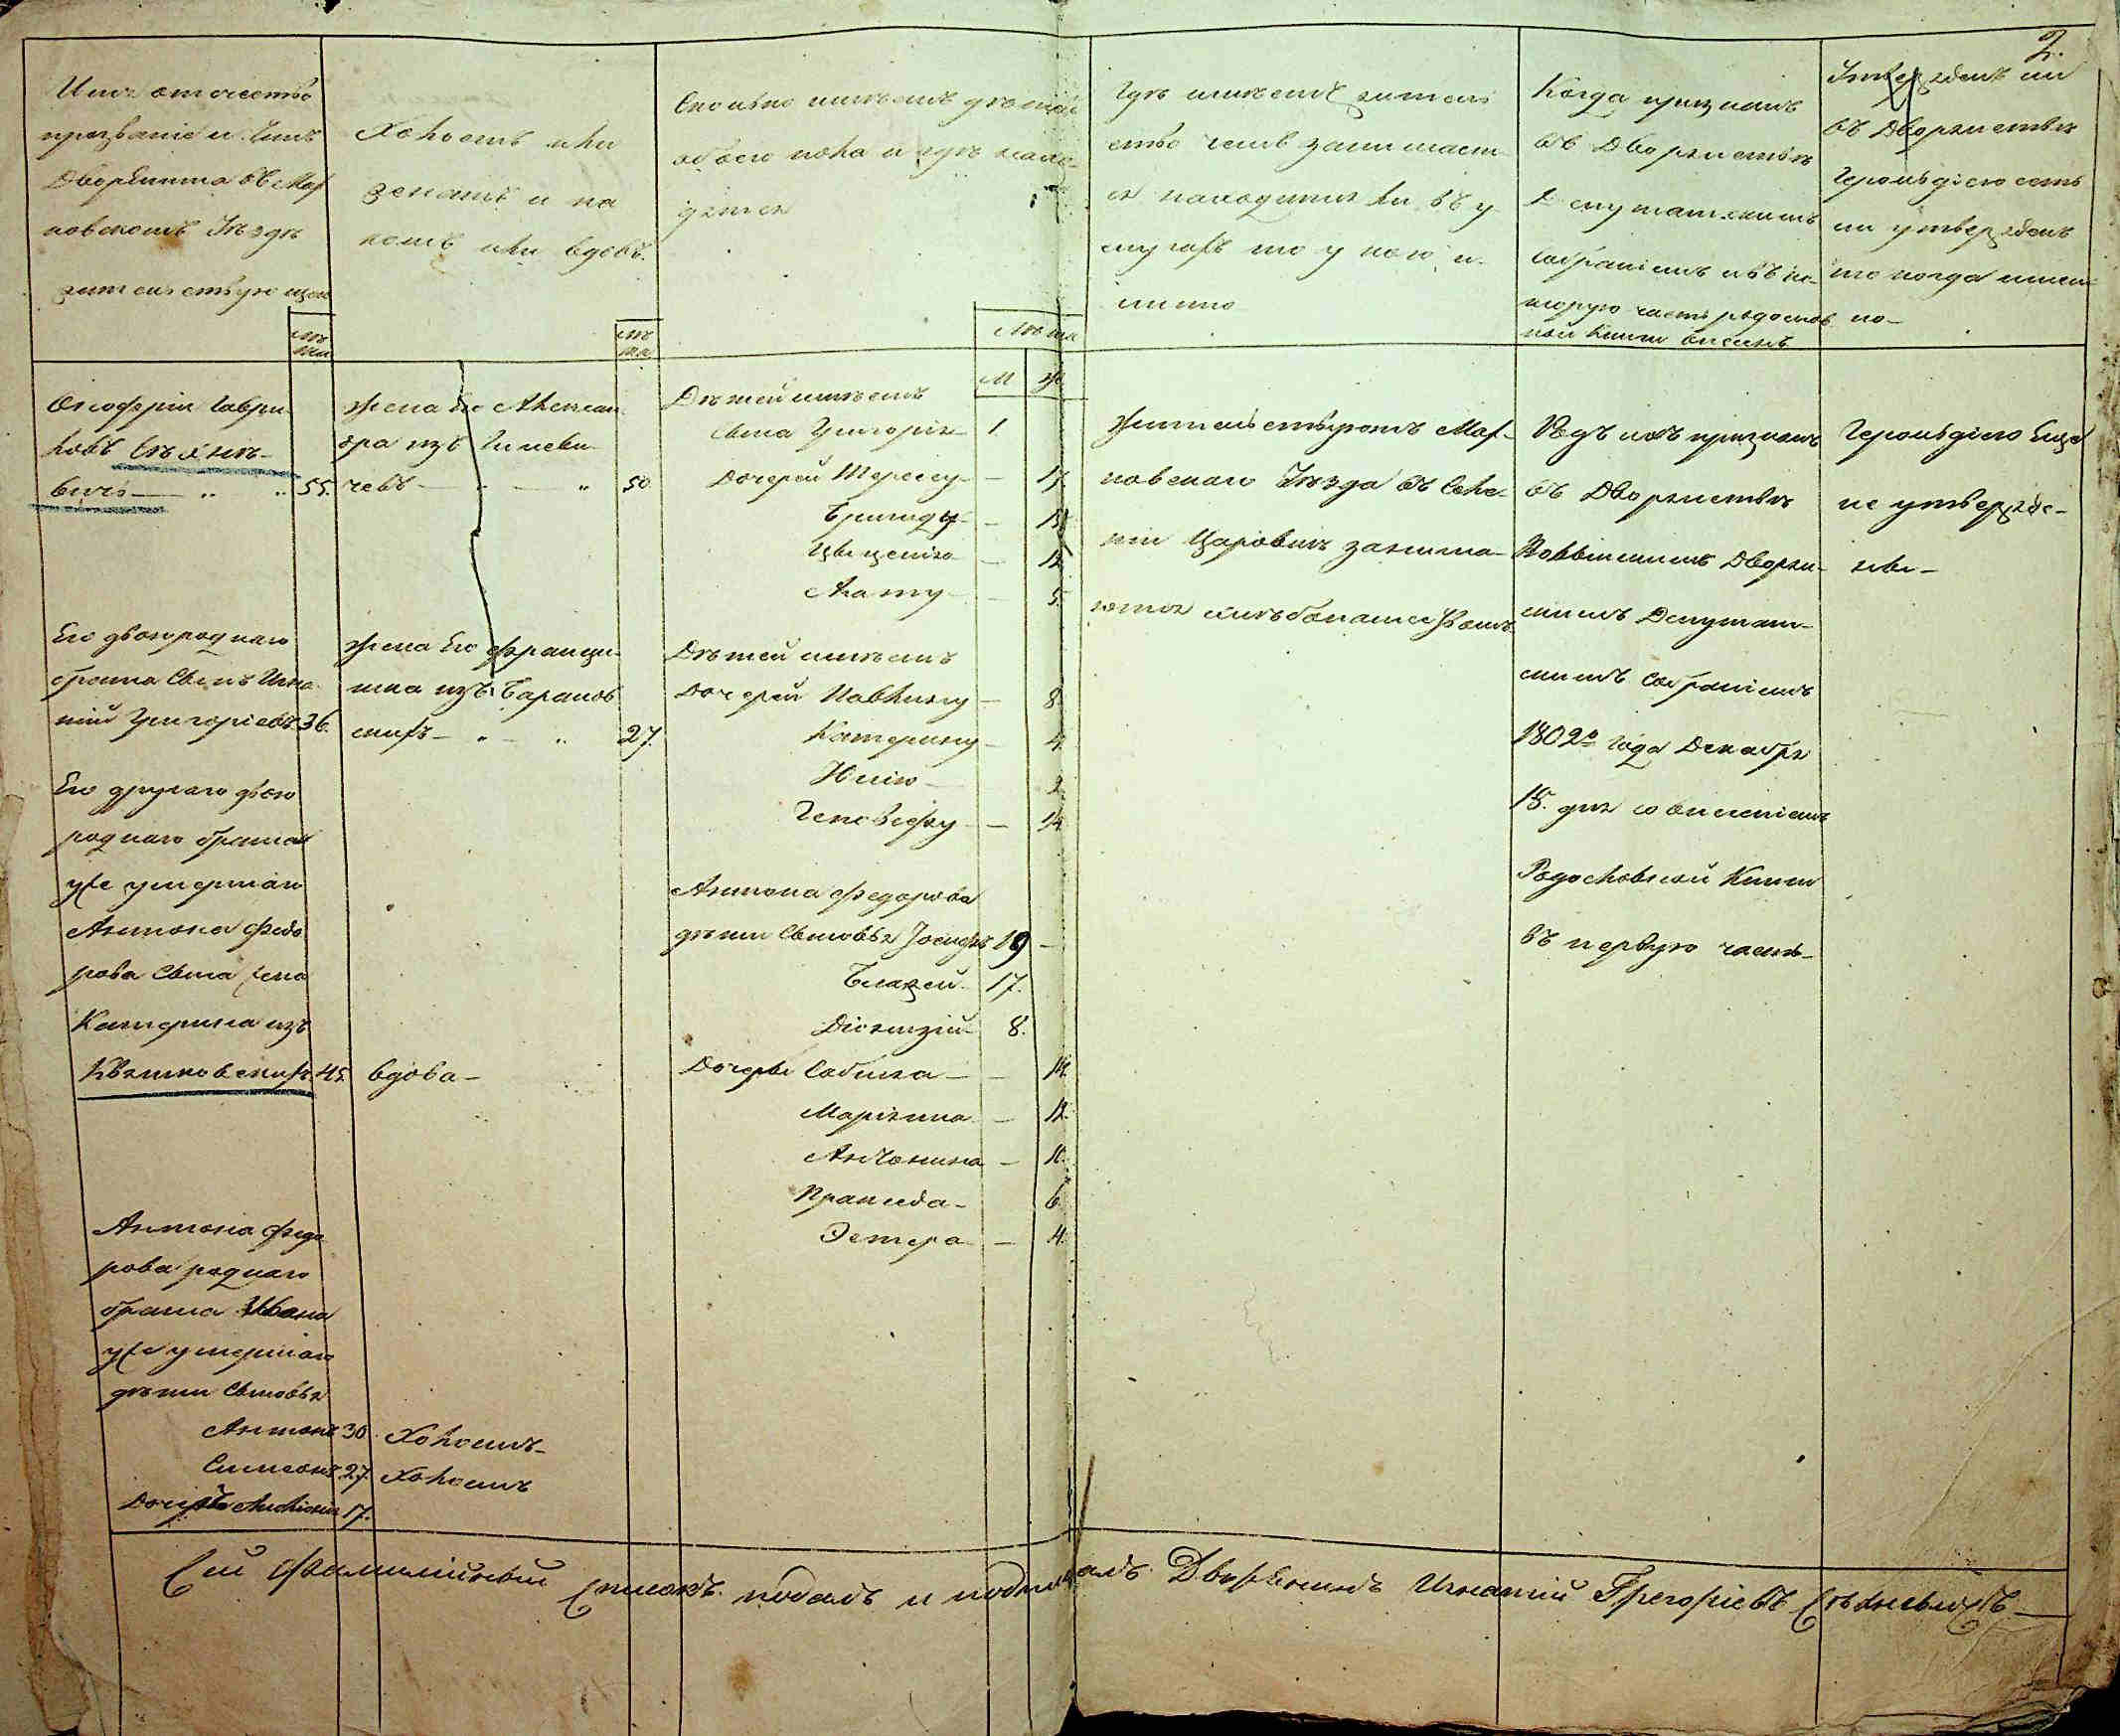 2.
Имя отчество
прозваніе и Чинъ
Дворянина въ Мах
новскомъ Уѣздѣ
жительствующаго
лѣ
та
Холостъ или
женатъ и на
комъ или вдовъ.
лѣ
та
Сколько имѣетъ дѣтей
обоего пола и гдѣ нахо
дятся
Лѣта
М Ж
Гдѣ имѣетъ житель
ство чемъ занимает
ся находится ли въ у
слугахъ то у кого и
имянно
Когда признанъ
въ Дворянствѣ
Депутатскимъ
Собраніемъ и въ ко-
торую часть родослов
ной Книги внесенъ
Утвержденъ ли
въ Дворянствѣ
Герольдіею есть
ли утвержденъ
то когда имян
но-
Онофрій Гаври
ловъ
вичъ 55.
жена Его Алексан
дра изъ
чевъ 50
Дѣтей имѣетъ
Сына Григорія 1.
Дочерей Терезу 17.
Бригиду
Анну 5.
жительствуютъ Мах-
новскаго Уѣзда въ Селе-
ніи занима-
ются хлѣбопашествомъ
Родъ ихъ признанъ
въ Дворянствѣ
Дворян-
скимъ Депутат-
скимъ Собраніемъ
1802го года Декабря
15. дня со внесеніемъ
Родословной Книги
въ первую часть-
Герольдіею Еще
не утвержде-
ны-
Его двоюроднаго
брата Сынъ Игна
тій Григорьевъ 36.
жена Его Франци
шка изъ Баранов
скихъ 27.
Дѣтей имѣетъ
Дочерей Павлину 8
Катерину 4.
Юлію 2
Геновефу
Его другаго двою
роднаго брата
уже умершаго
Антона Федо
рова Сына жена
Катерина изъ
45. вдова-
Антона Федорова
дѣти Сыновья Іосифъ 19
Блажей 17.
Діонизій 8.
Дочери Сабина 14.
Маріянна 12.
Антонина 10.
Пракседа 6.
Эстера 4.
Антона Федо
рова роднаго
брата Ивана
уже умершаго
дѣти Сыновья
Антонъ 30. Холостъ-
Симеонъ 27. Холостъ
Дочерь 17.
Сей Фамилійный Списокъ подалъ и подписалъ Дворянинъ Игнатій Грегоріевъ